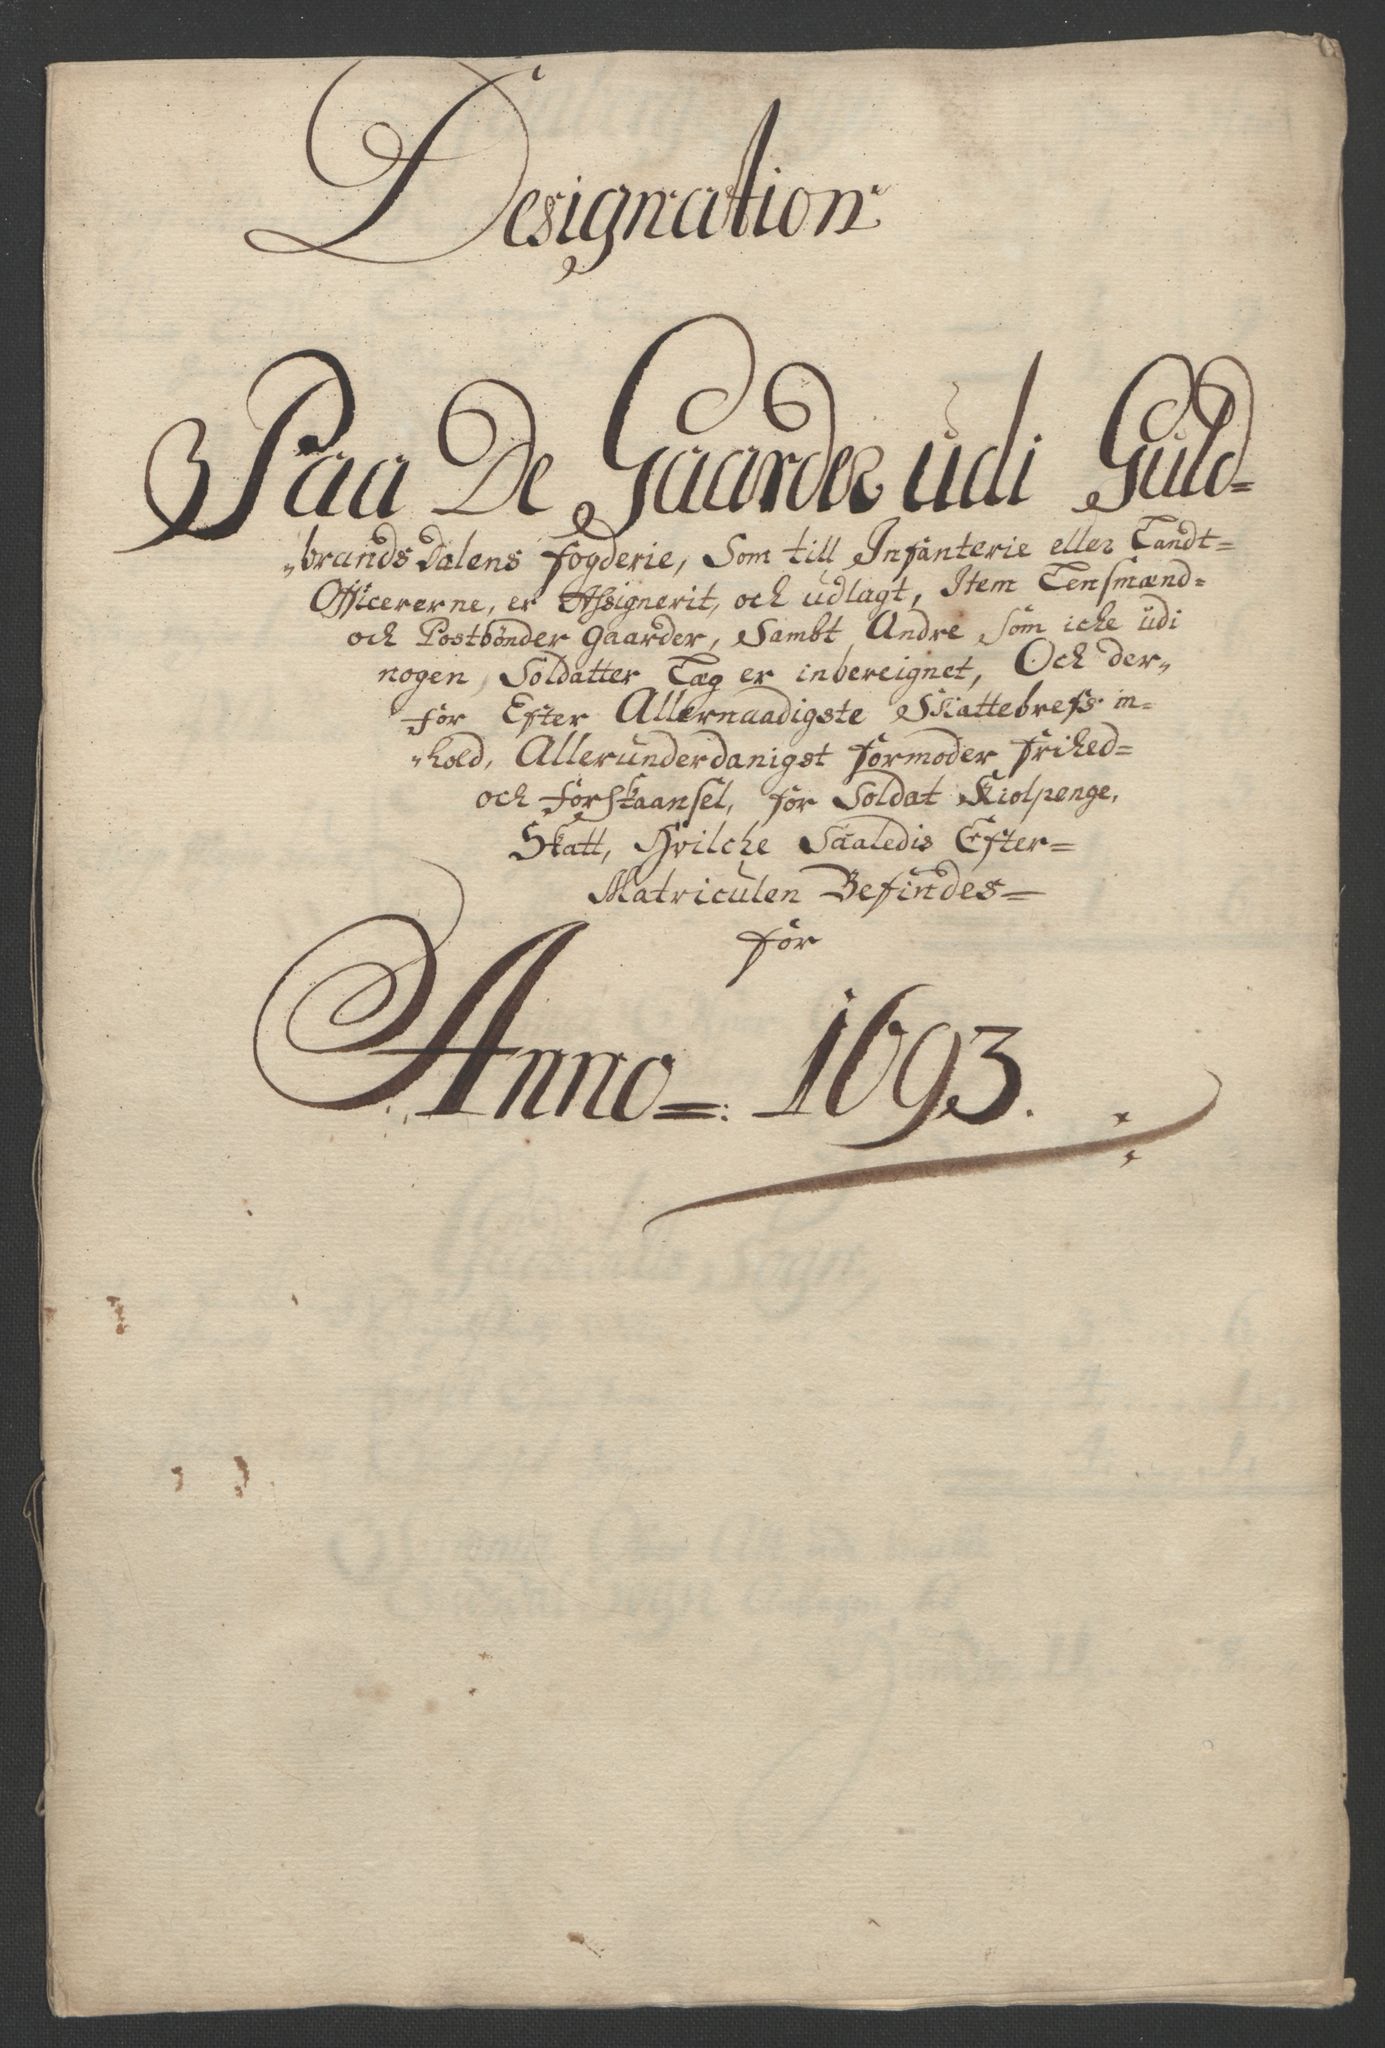 Designation
Paa De Gaarder udi Guld=
brands Dalens fogderie, Som till Infanterie eller Landt=
Officererne, er Assignerit, och udlagt, Item Lensmænd=
och Postbönder gaarder, Sambt Andre Som iche udi
nogen Soldatter Læg er inbereignet, Och der„
for Efter Allernaadigste Skattebrefs in=
„hold, Allerunderdanigst formoder frihed=
och forskaansel, for Soldat Kiolpenge,
Skatt, Hvilche Saaledis Efter=
Matriculen Befindes=
for
Anno=: 1693.